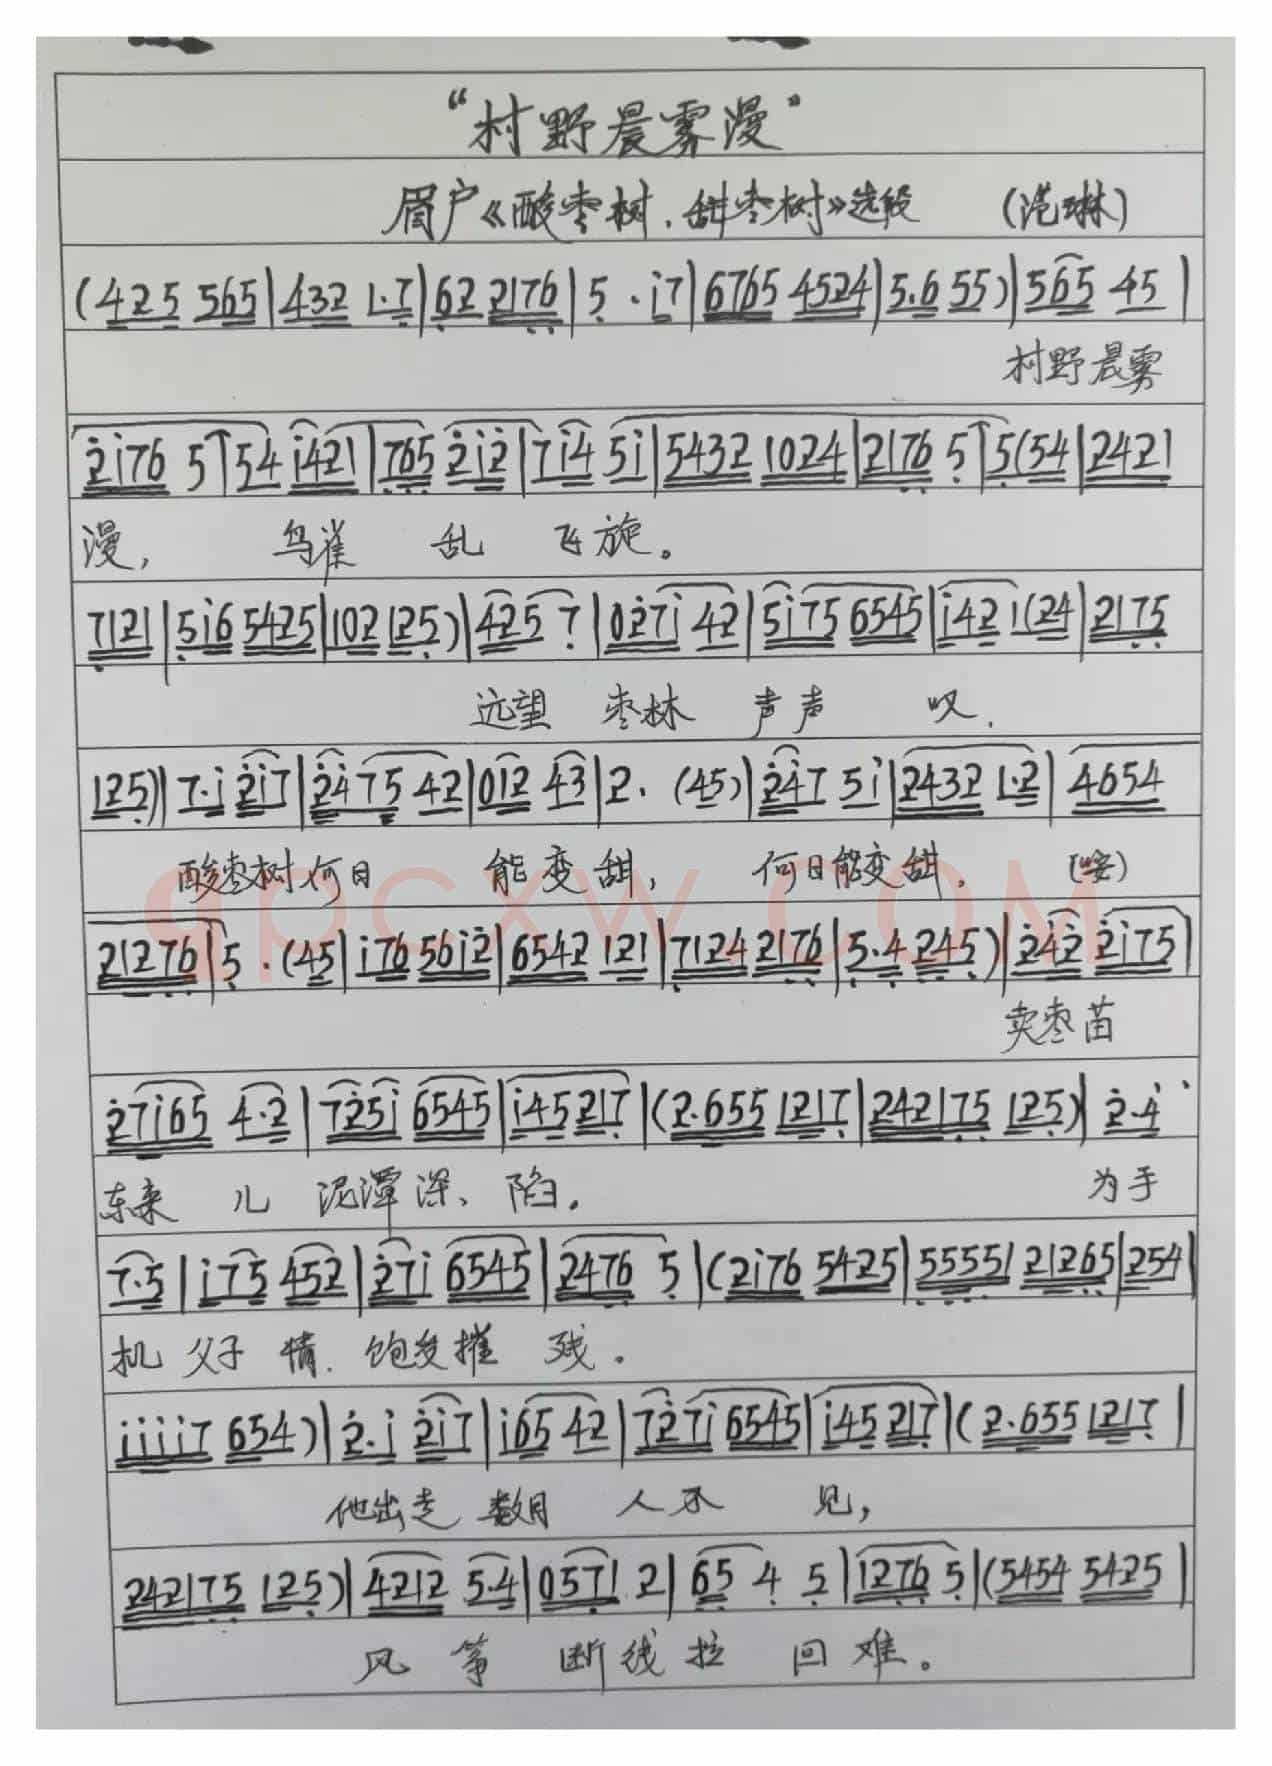 “村野晨雾漫”
眉户《酸枣树、甜枣树》选段 (范琳)
(425 565|432 1·7|62 2176|5·i7|6765 4524|5·6 55)|565 45|
村野晨雾
2i76 5|54 i421|765 2i2|7i4 5i|5432 1024|2176 5|5(54|2421
漫, 鸟雀 乱 飞旋。
7121|5i6 5425|102 125)|425 7|027i 42|5i75 6545|i42 1(24|2175
远望 枣林 声声 叹.
125)|7·i 2i7|2475 42|012 43|2· (45)|247 5i|2432 1·2|4654
酸枣树何日 能变甜, 何日能变甜. (安)
qpcxw.COM
21276|5·(45|i76 56i2|6542 121|7124 2176|5·4 245)|242 2i75|
卖枣苗
27i65 4·2|725i 6545|i45217|(2·655 1217|242175 125)|2·4
东来 儿 泥潭深、陷。 为手
7·5|i75 452|27i 6545|2476 5|(2i76 5425|55551 21265|254|
机 父子 情. 饱受摧 残。
iiii7 654)|2·i 2i7|i65 42|727i 6545|i45 217|(2·655 1217|
他出走 数月 人不 见,
242175 125)|4212 5·4|0571 2|65 4 5|1276 5|(5454 5425|
风 筝 断线拉 回 难。